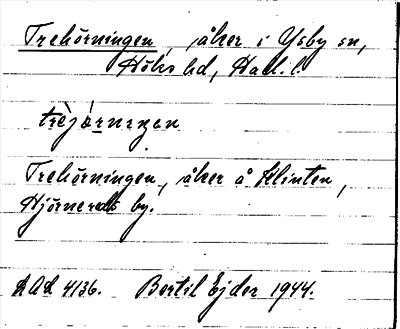 Trehörningen, åker i Ysby sn,
Höks hd, Hall. l.
Trehörningen, åker å Klinten,
Hjörnereds by.
LAL 4136. Bertil Ejder 1944.